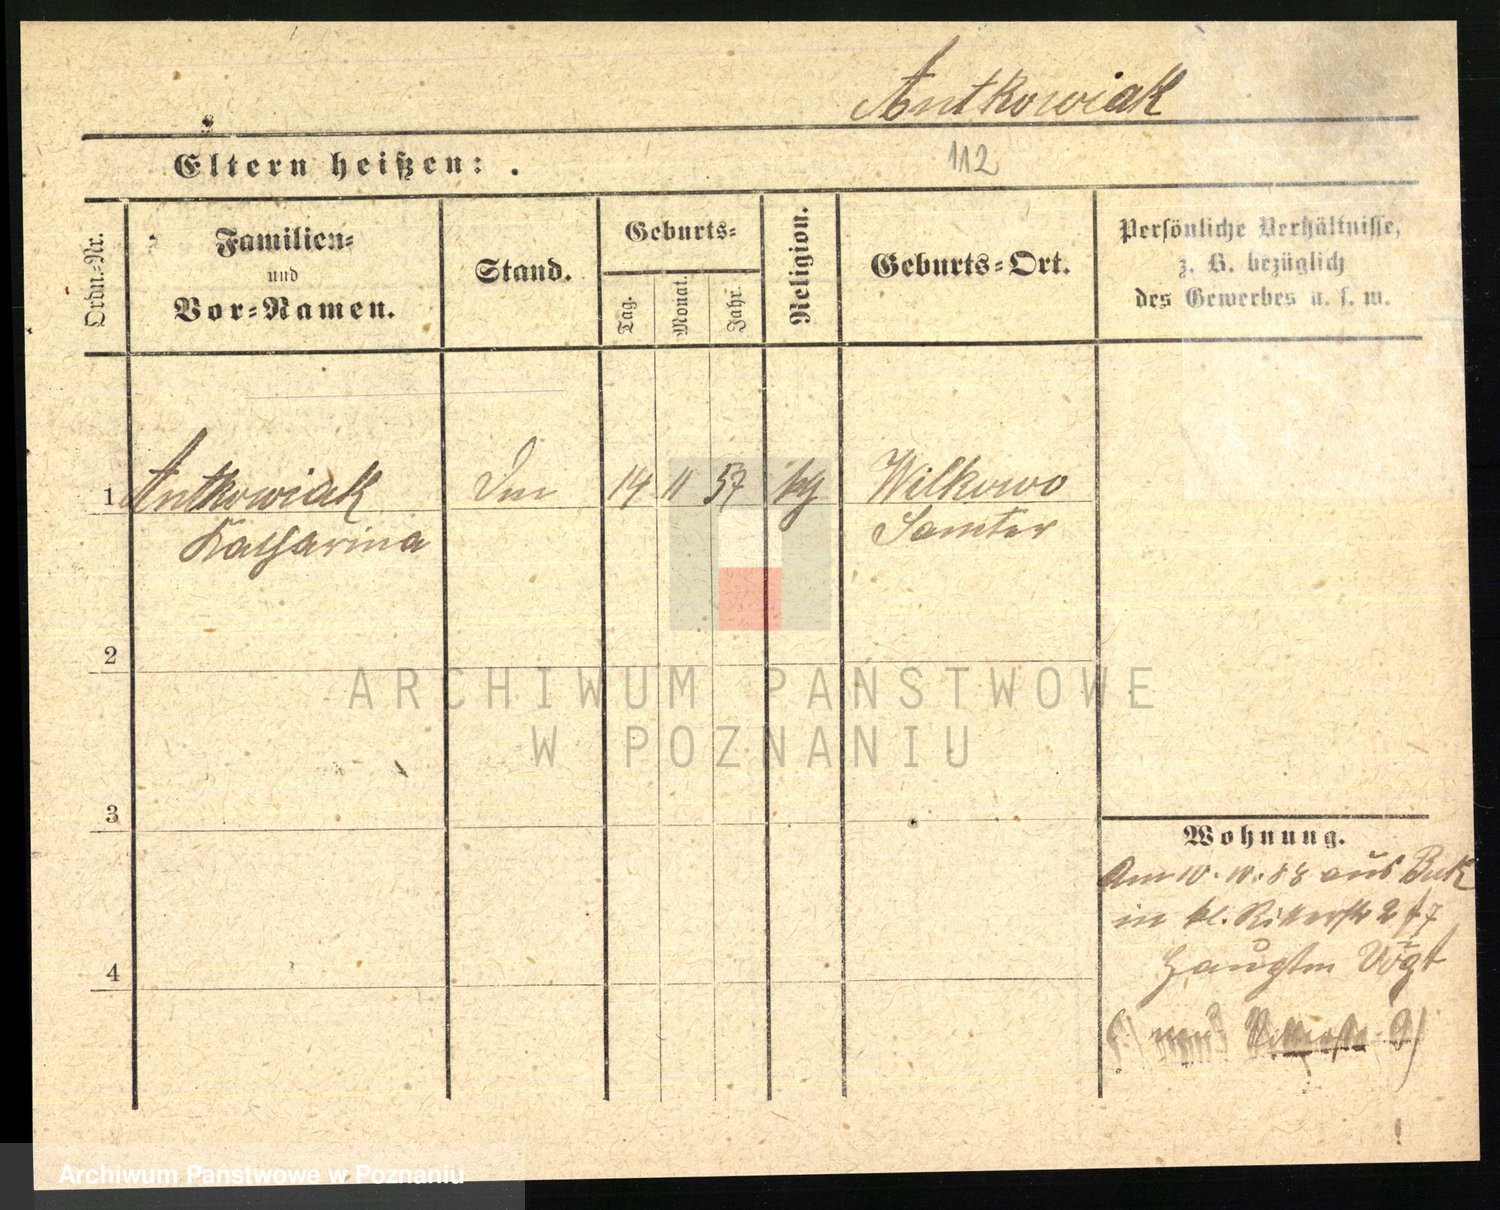 Antkowiak
Eltern heißen:
112
Ordn.-Nr.
Familien-
und
Vor-Namen.
Stand.
Geburts-
Tag.
Monat.
Jahr.
Religion.
Geburts-Ort.
Persönliche Verhältnisse,
z. B. bezüglich
des Gewerbes u. s. w.
1 Antkowiak 14 11 57 Wilkowo
Katharina Samter
2
ARCHIWUM PAŃSTWOWE
W POZNANIU
3
Wohnung.
Am 10. 10. 88 aus Buk
in kl. Ritterstr 2
4
Vogt
Archiwum Państwowe w Poznaniu